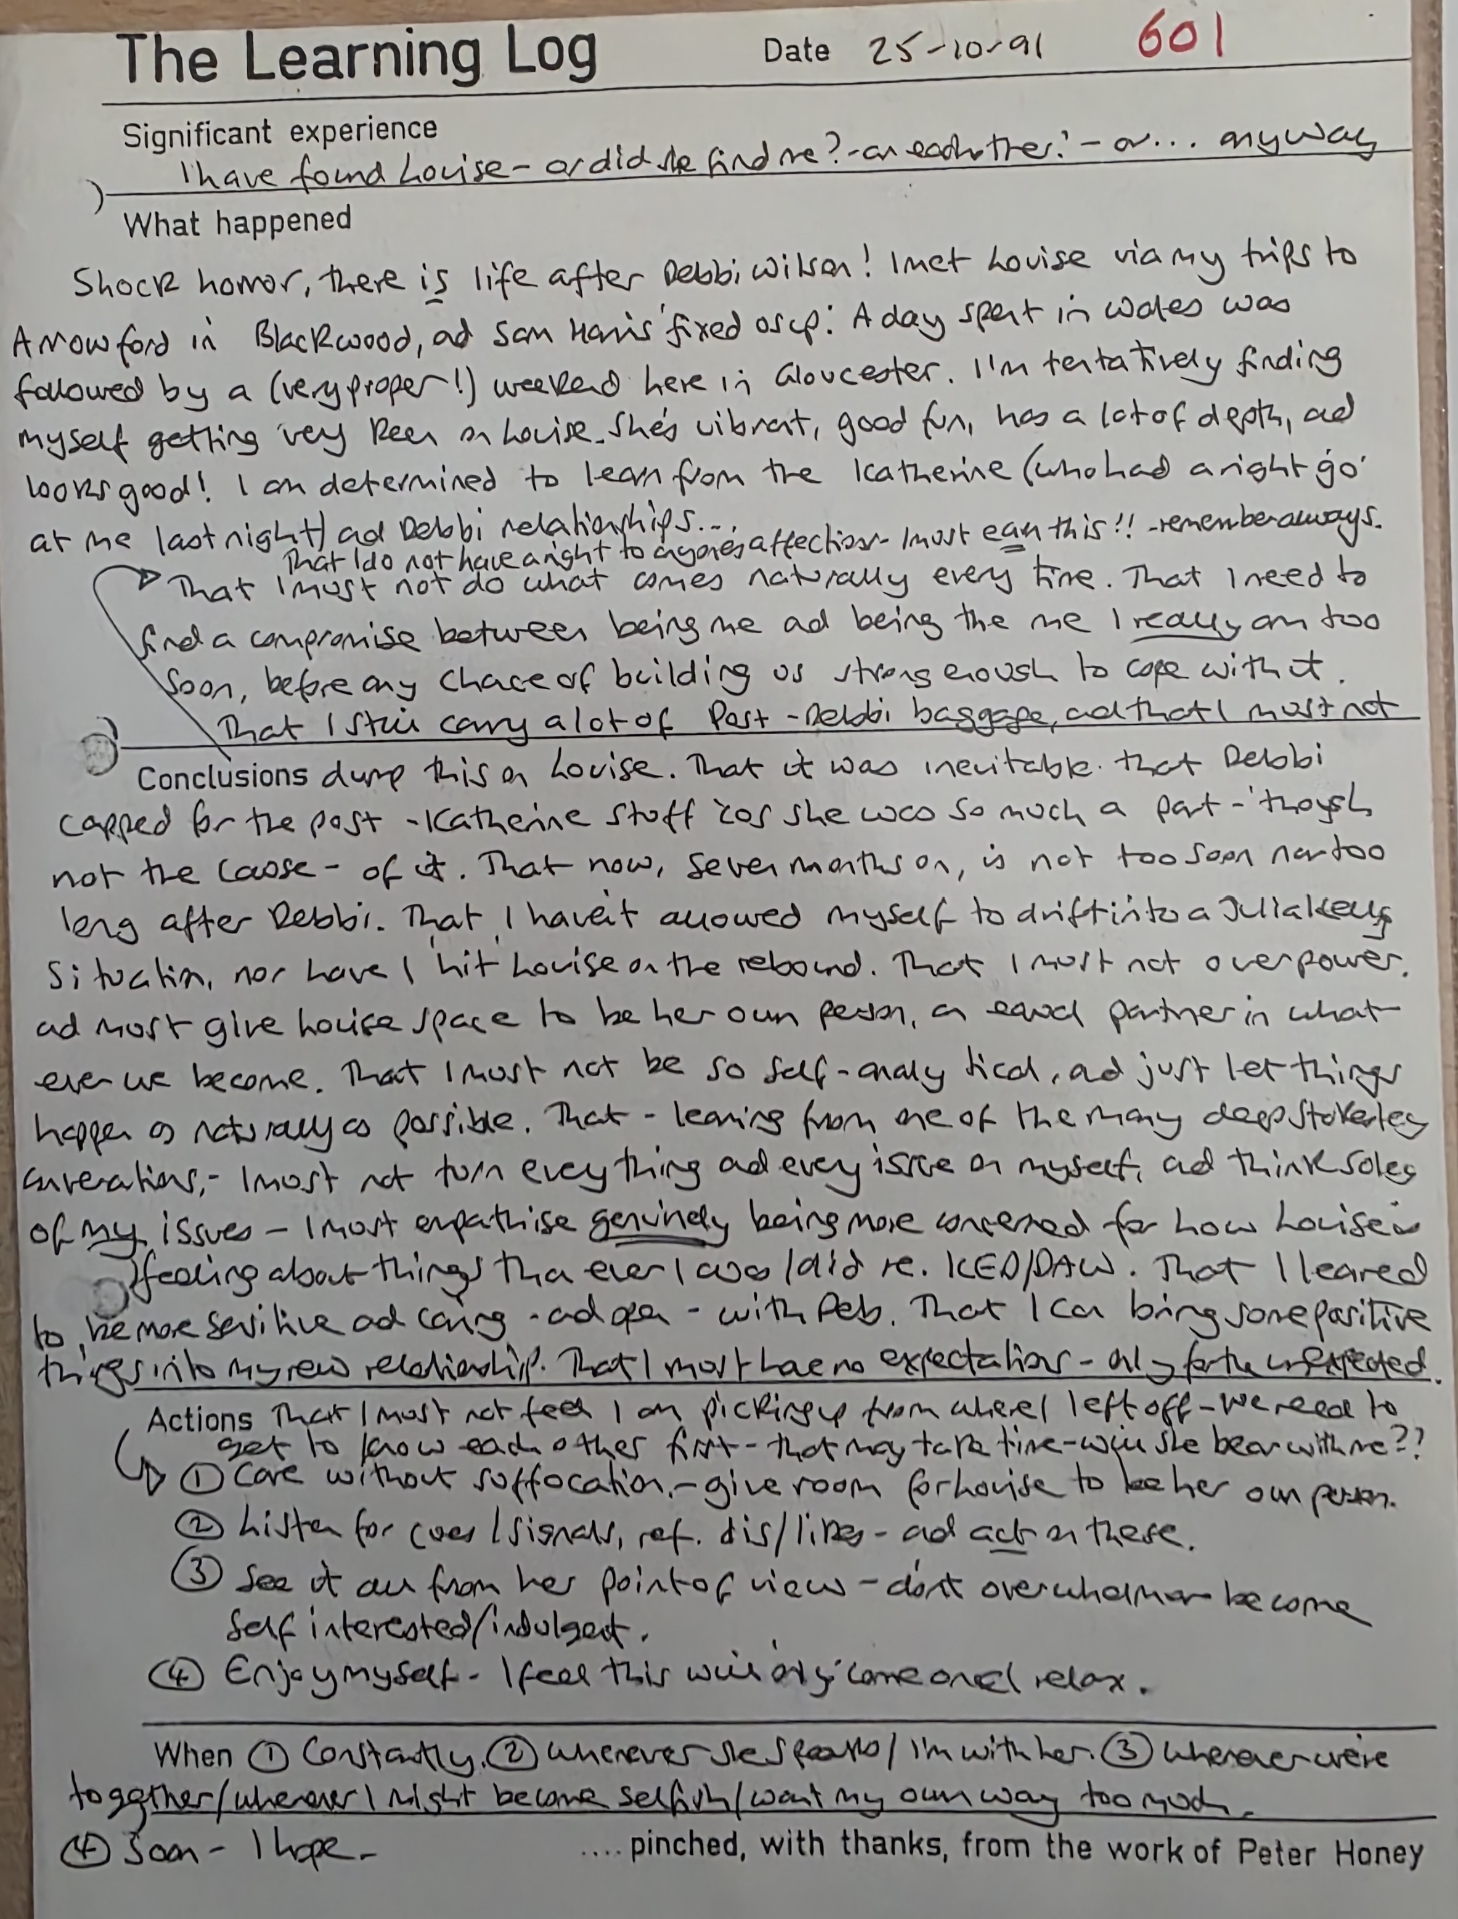 The Learning Log Date 25-10-91 601
Significant experience
I have found Louise - or did she find me? - or each other? - or... anyway
What happened
Shock horror, there is life after Debbi Wilson! I met Louise via my trips to
Arrowford in Blackwood, ad Sam Harris 'fixed us up: A day spent in Wales was
followed by a (very proper!) weekend here in Gloucester. I'm tentatively finding
myself getting very keen on Louise. She's vibrant, good fun, has a lot of depth, ad
looks good! I am determined to learn from the Katherine (who had a right 'go'
at me last night) ad Debbi relationships...
That I do not have a right to anyones affection - I must earn this!! - remember always.
That I must not do what comes naturally every time. That I need to
find a compromise between being me ad being the me I really am too
soon, before any chance of building us strong enough to cope with it.
That I still carry a lot of Post-Debbi baggage, ad that I must not
Conclusions dump this on Louise. That it was inevitable that Debbi
copped for the post-Katherine stuff 'cos she was so much a part - 'though
not the cause - of it. That now, seven months on, is not too soon nor too
long after Debbi. That I haven't allowed myself to drift into a Julia Kelly
situation, nor have I 'hit' Louise on the rebound. That I must not overpower,
ad must give Louise space to be her own person, an equal partner in what
ever we become. That I must not be so self-analytical, ad just let things
happen as naturally as possible. That - learning from one of the many deep Stokesley
conversations, - I must not turn everything ad every issue on myself, ad think solely
of my issues - I must empathise genuinely being more concerned for how Louise is
feeling about things than ever I was/did re. KED/DAW. That I learned
to be more sensitive ad caring - ad open - with Deb. That I can bring some positive
things into my new relationship. That I must have no expectations - only for the unexpected.
Actions That I must not feel I am picking up from where I left off - we need to
get to know each other first - that may take time - will she bear with me??
① Care without suffocation, - give room for Louise to be her own person.
② Listen for cues/signals, ref. dis/likes - ad act on these.
③ See it all from her point of view - don't overwhelm or become
self interested/indulgent.
④ Enjoy myself - I feel this will only come once I relax.
When ① Constantly. ② Whenever she speaks/I'm with her. ③ Whenever we're
together/whenever I might become selfish/want my own way too much.
④ Soon - I hope -
.... pinched, with thanks, from the work of Peter Honey